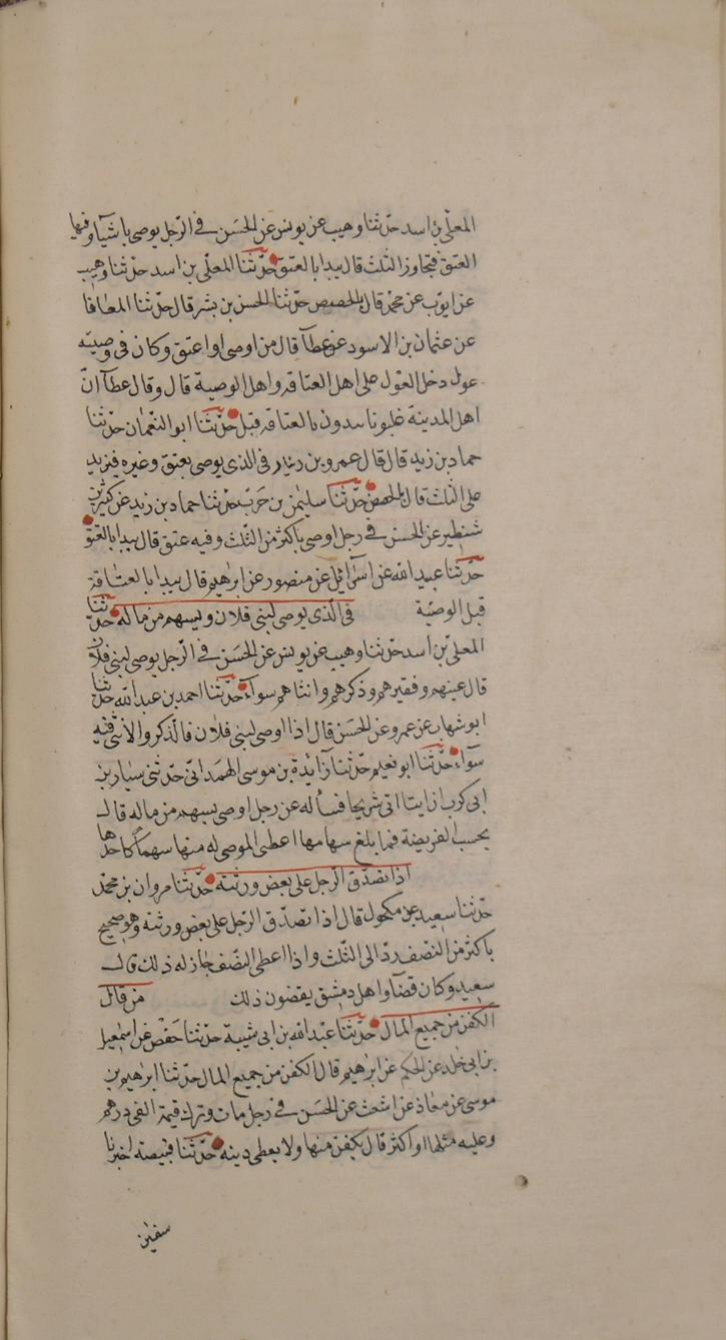 المعلّى بن اسد حدّثنا وهيب عن يونس عن الحسَن في الرّجل يوصى باشيآء وفيها
العتق فيجاوز الثلث قال يبدا بالعتق حدّثنا المعلّى بن اسد حدّثنا وهيب
عن ايوّب عن محمّد قال بالحصص حدّثنا الحسن بن بشر قال حدّثنا المعافا
عن عثمان بن الاسود عن عطآء قال من اوصى او اعتق وكان فى وصيته
عول دخل العول على اهل العتاقه واهل الوصية قال وقال عطآء انّ
اهل المدينة غلبونا يبدون بالعتاقه قبل حدّثنا ابو النّعمان حدّثنا
حماد بن زيد قال قال عمرو بن دينار فى الذى يوصى بعتق وغيره فيزيد
على الثلث قال بالحصص حدّثنا سليمٰن بن حَرب حدّثنا حماد بن زيد عن كثير بن
شنطير عن الحسَن في رجل اوصى باكثر من الثّلث وفيه عتق قال يبدا بالعتق
حدّثنا عبيد الله عن اسرآئيل عن منصور عن ابرٰهيم قال يبدا بالعتاقة
قبل الوصيّة في الّذى يوصى لبنى فلان ويسهم من ماله حدّثنا
المعلّى بن اسد حدّثنا وهيب عن يونس عن الحسَن في الرّجل يوصى لبنى فلان
قال غنيهم وفقيرهم وذكرهم وانثاهم سوآء حدّثنا احمد بن عبد الله حدّثنا
ابو شهاب عن عمرو عن الحسَن قال اذا اوصى لبنى فلان فالذكر والانثى فيه
سوآء حدّثنا ابو نعيم حدّثنا زآئدة بن موسى الهمدانى حدّثنى سيار بن
ابى كرب ان ايتا اتى شريحا فسأله عن رجل اوصى بسهم من ماله قال
يحسب الفريضة فما بلغ سهامها اعطى الموصى له منها سهما كاحدها
اذا تصدّق الرّجل على بعض ورثته حدّثنا مروان بن محمّد
حدّثنا سعيد عن مكحول قال اذا تصدّق الرّجل على بعض ورثته وهو صحيح
باكثر من النّصف ردّ الى الثّلث واذا اعطى النّصف جاز له ذلك قال
سعيد وكان قضآء اهل دمشق يقضون ذلك من قال
الكفن من جميع المال حدّثنا عبد الله بن ابى شيبة حدّثنا حفص عن اسمٰعيل
بن ابى خٰلد عن الحكم عن ابرٰهيم قال الكفن من جميع المال حدّثنا ابرٰهيم بن
موسى عن معاذ عن اشعث عن الحسَن في رجل مات وترك قيمة الفى درهم
وعليه مثلها او اكثر قال يكفن منها ولا يعطى دينه حدّثنا قبيصة اخبرنا
سفيٰن